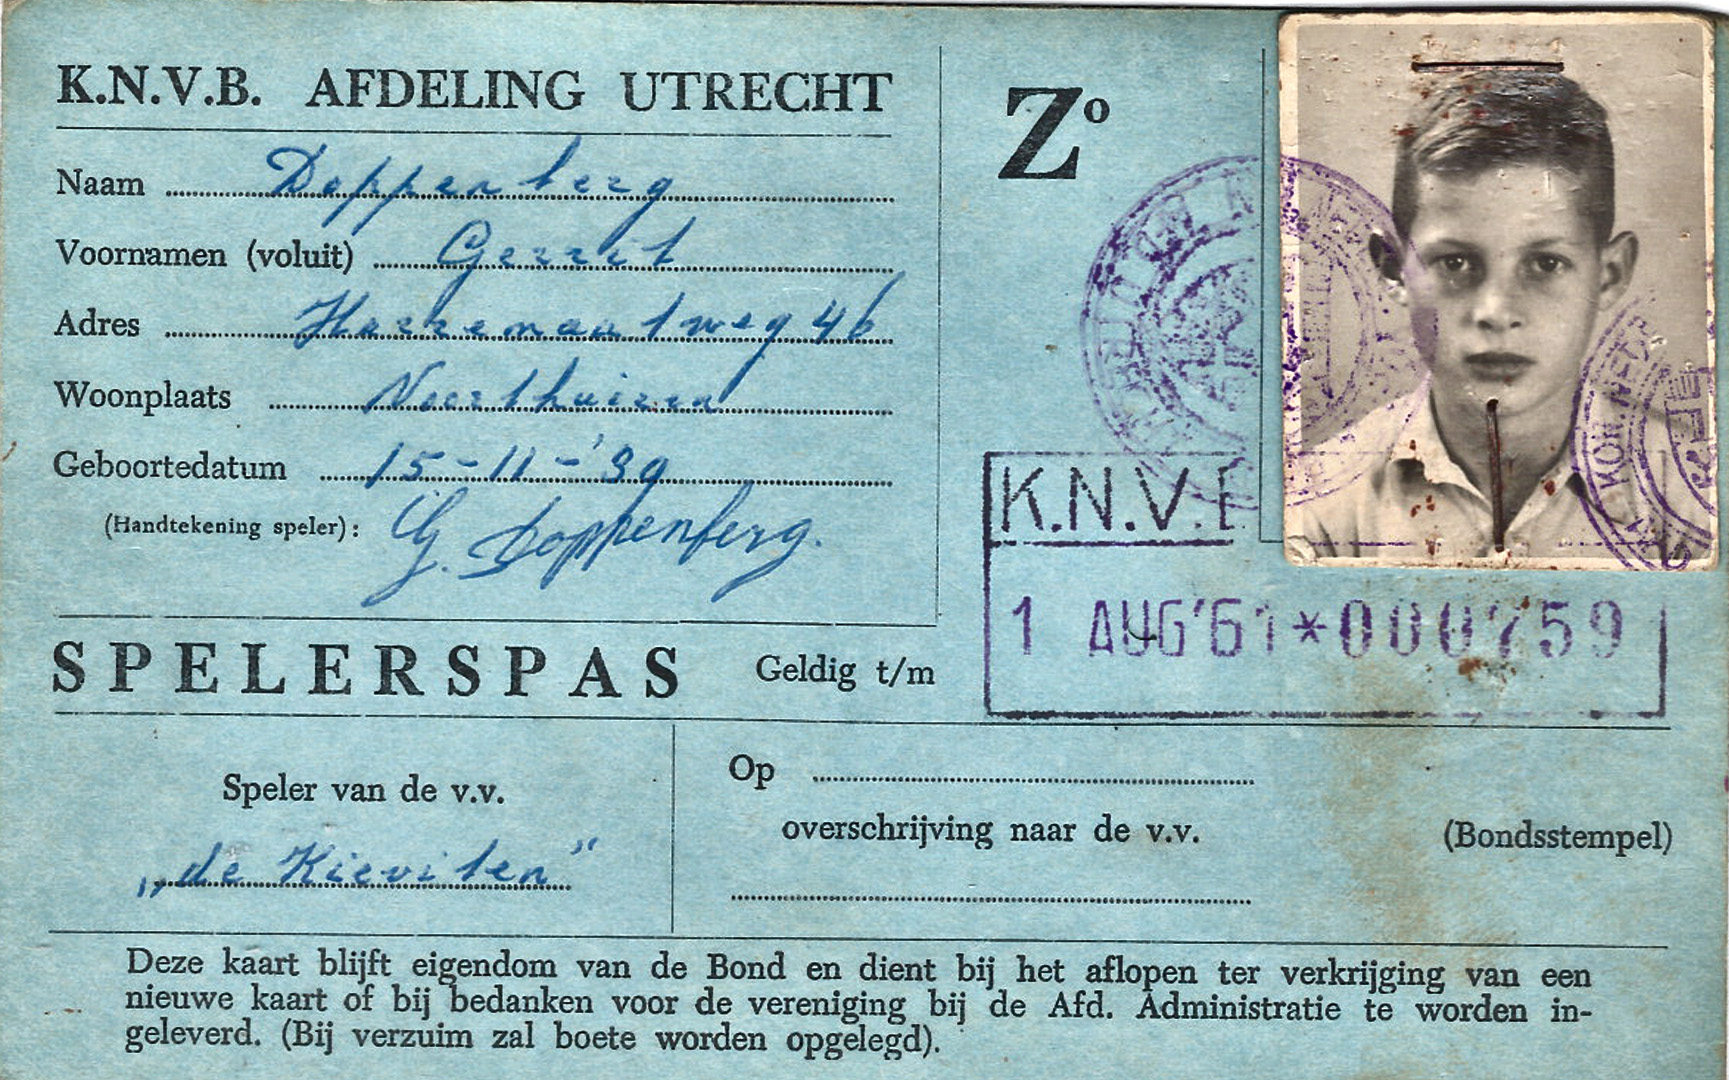 K.N.V.B. AFDELING UTRECHT
Naam Doppenberg
Voornamen (voluit) Gerrit
Adres
Woonplaats
Geboortedatum 15-11-'39
(Handtekening speler): G. Doppenberg.
Zº
K.N.V.
1 AUG'61*000759
KON. NED.
SPELERSPAS Geldig t/m
Speler van de v.v.
„de Kieviten”
Op
overschrijving naar de v.v.
(Bondsstempel)
Deze kaart blijft eigendom van de Bond en dient bij het aflopen ter verkrijging van een
nieuwe kaart of bij bedanken voor de vereniging bij de Afd. Administratie te worden in-
geleverd. (Bij verzuim zal boete worden opgelegd).